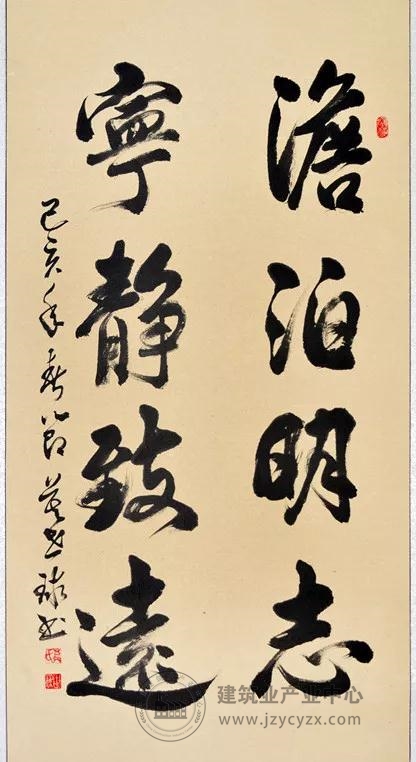 澹泊明志
寧靜致遠
己亥年春節
书
建筑业产业中心
www.jzycyzx.com